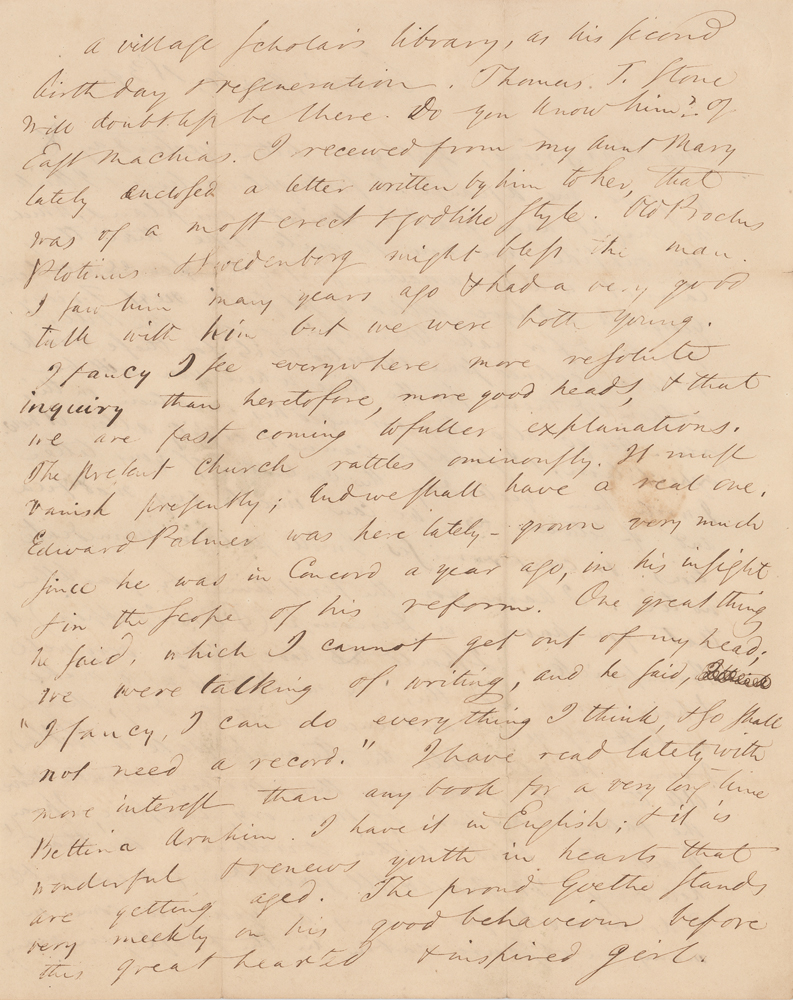 a village scholar's library, as his second
birthday & regeneration. Thomas. T. Stone
will doubtless be there. Do you know him? of
East Machias. I received from my Aunt Mary
lately enclosed a letter written by him to her, that
was of a most erect & godlike style. Old Proclus
Plotinus & Swedenborg might bless the man.
I saw him many years ago & had a very good
talk with him but we were both young.
I fancy I see everywhere more resolute
inquiry than heretofore, more good heads, & that
we are fast coming to fuller explanations.
The present Church rattles ominously. It must
vanish presently; and we shall have a real one.
Edward Palmer was here lately - grown very much
since he was in Concord a year ago, in his insight
& in the scope of his reform. One great thing
he said, which I cannot get out of my head;
we were talking of writing, and he said,
"I fancy, I can do everything I think, & so shall
not need a record." I have read lately with
more interest than any book for a very long time
Bettina Arnhim. I have it in English; & it is
wonderful & renews youth in hearts that
are getting aged. The proud Goethe stands
very meekly on his good behaviour before
this great hearted & inspired girl.